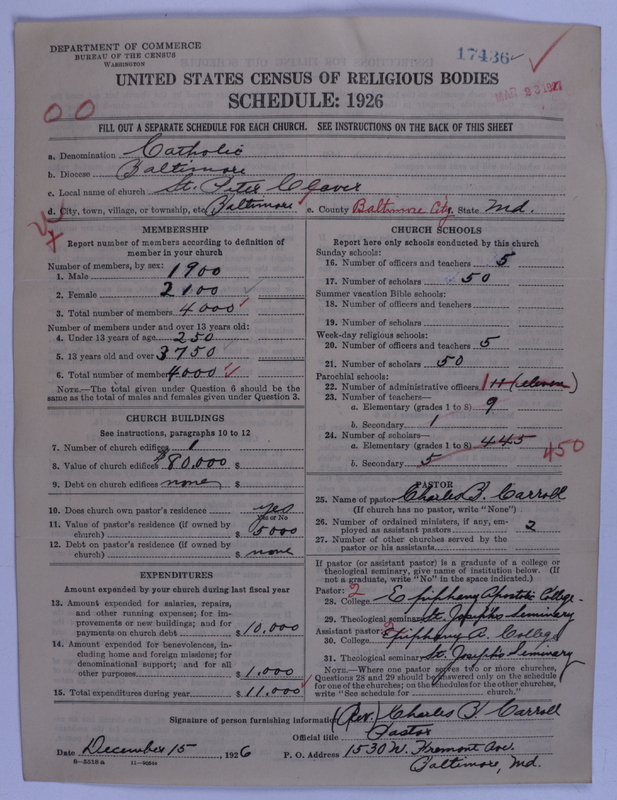 DEPARTMENT OF COMMERCE
BUREAU OF THE CENSUS
WASHINGTON
17436
MAR 23 1927
UNITED STATES CENSUS OF RELIGIOUS BODIES
SCHEDULE: 1926
00
FILL OUT A SEPARATE SCHEDULE FOR EACH CHURCH. SEE INSTRUCTIONS ON THE BACK OF THIS SHEET
a. Denomination Catholic
b. Diocese Baltimore
c. Local name of church St. Peter Claver
d. City, town, village, or township, etc Baltimore e. County Baltimore City State Md.
MEMBERSHIP
Report number of members according to definition of
member in your church
Number of members, by sex:
1. Male 1900
2. Female 2100
3. Total number of members 4000
Number of members under and over 13 years old:
4. Under 13 years of age 250
5. 13 years old and over 3750
6. Total number of members 4000
NOTE.—The total given under Question 6 should be the
same as the total of males and females given under Question 3.
CHURCH BUILDINGS
See instructions, paragraphs 10 to 12
7. Number of church edifices 1
8. Value of church edifices $80,000 $
9. Debt on church edifices none $
10. Does church own pastor's residence yes
Yes or No
11. Value of pastor's residence (if owned by
church) $ 5000
12. Debt on pastor's residence (if owned by
church) $ none
EXPENDITURES
Amount expended by your church during last fiscal year
13. Amount expended for salaries, repairs,
and other running expenses; for im-
provements or new buildings; and for
payments on church debt $ 10,000
14. Amount expended for benevolences, in-
cluding home and foreign missions; for
denominational support; and for all
other purposes $ 1,000
15. Total expenditures during year $ 11,000
CHURCH SCHOOLS
Report here only schools conducted by this church
Sunday schools:
16. Number of officers and teachers 5
17. Number of scholars 50
Summer vacation Bible schools:
18. Number of officers and teachers
19. Number of scholars
Week-day religious schools:
20. Number of officers and teachers 5
21. Number of scholars 50
Parochial schools:
22. Number of administrative officers 1 11 (eleven)
23. Number of teachers—
a. Elementary (grades 1 to 8) 9
b. Secondary 1
24. Number of scholars—
a. Elementary (grades 1 to 8) 445
450
b. Secondary 5
PASTOR
25. Name of pastor Charles B. Carroll
(If church has no pastor, write "None")
26. Number of ordained ministers, if any, em-
ployed as assistant pastors 2
27. Number of other churches served by the
pastor or his assistants
If pastor (or assistant pastor) is a graduate of a college or
theological seminary, give name of institution below. (If
not a graduate, write "No" in the space indicated.)
Pastor: 2
28. College Epiphany Apostolic College
29. Theological seminary St. Josephs Seminary
Assistant pastor: 2
30. College Epiphany A. College
31. Theological seminary St. Josephs Seminary
NOTE.—Where one pastor serves two or more churches,
Questions 28 and 29 should be answered only on the schedule
for one of the churches; on the schedules for the other churches,
write "See schedule for church."
Signature of person furnishing information (Rev.) Charles B. Carroll
Official title Pastor
Date December 15, 1926 P. O. Address 1530 N. Fremont Ave.
Baltimore, Md.
8—5518 a